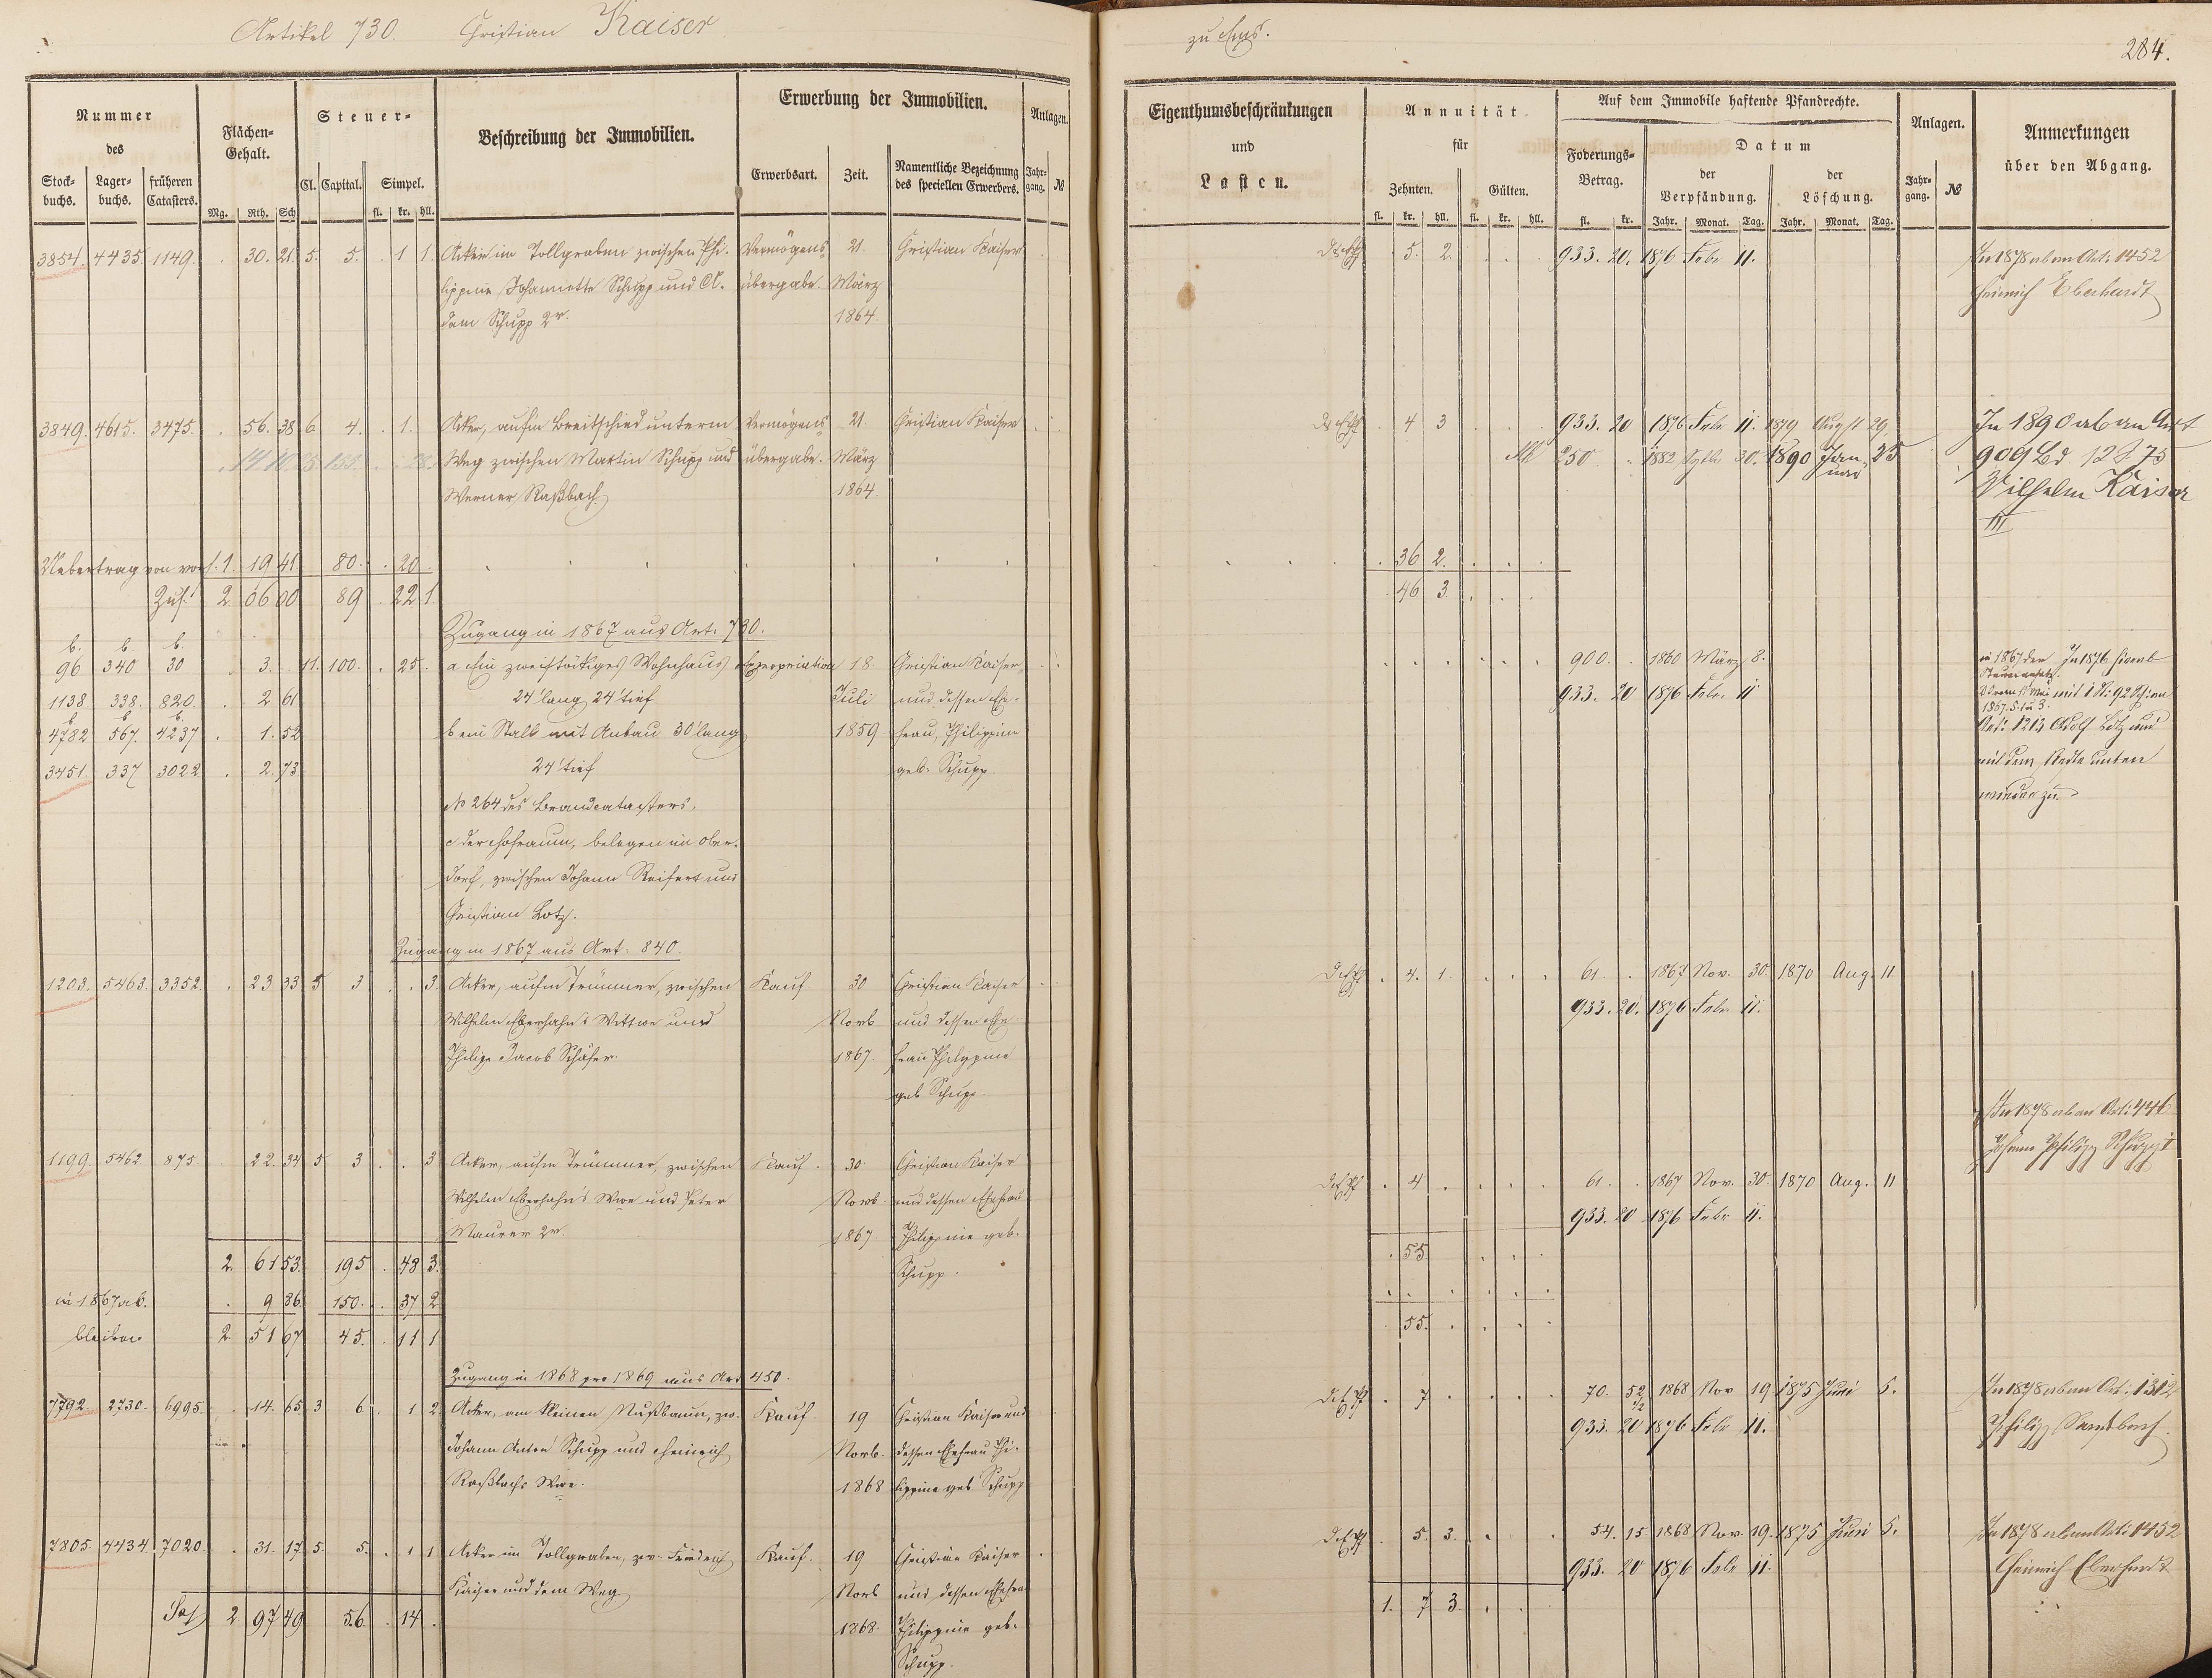 Artikel 730. Christian Kaiser
zu Ems.
284.
Nummer des
Stock-buchs. Lager-buchs. früheren Catasters.
Flächen-Gehalt.
Mg. Rth. Sch
Steuer-
Cl. Capital. Simpel.
fl. kr. hll.
Beschreibung der Immobilien.
Erwerbung der Immobilien.
Erwerbsart. Zeit. Namentliche Bezeichnung des speciellen Erwerbers.
Anlagen.
Jahr-gang. №
Eigenthumsbeschränkungen
und
Lasten.
Annuität
für
Zehnten. Gülten.
fl. kr. hll. fl. kr. hll.
Auf dem Immobile haftende Pfandrechte.
Foderungs-Betrag.
fl. kr.
Datum
der Verpfändung. der Löschung.
Jahr. Monat. Tag. Jahr. Monat. Tag.
Anlagen.
Jahr-gang. №
Anmerkungen
über den Abgang.
3854. 4435. 1149. . 30. 21. 5. 5. . 1 1. Acker im Tollgraben zwischen Phi- Vermögens- 21. Christian Kaiser 5. 2. 933. 20. 1876 Febr 11. In 1878 ab an Art: 1452
lippine Johannette Schupp und A- übergabe. März Heinrich Eberhardt
dam Schupp 2r. 1864.
3849. 4615. 3475. . 56. 38 6. 4. . 1. Acker, aufm Breitschied unterm Vermögens- 21 Christian Kaiser . 4 3 933. 20 1876 Febr 11. 1879 August 29 In 1890 ab an Art
Weg zwischen Martin Schupp und übergabe. März 250 . 1882 Septbr 30. 1890 Januar 25 909 Bd 12 S 75
Werner Raßbach 1864 Wilhelm Kaiser
III
Uebertrag von vorn 1. 19 41 80. . 20. . 36 2.
Zus. 2 06 00 89 . 22 1 46 3.
Zugang in 1867 aus Art. 730.
b. b. b.
96 340 30 . 3. . 11. 100. . 25. a Ein zweistöckiges Wohnhaus Expropriation 18 Christian Kaiser, 900. . 1860 März 8. in 1867 der In 1876 hievon
1138 338. 820. . 2 61 24' lang 24' tief Juli und dessen Ehe- 933. 20 1876 Febr. 11
b. b. b.
4782 567. 4237 . 1. 52 b ein Stall mit Anbau 30' lang 1859 frau, Philippine Art: 1213 Adolf Lotz und
3451. 337 3022 . 2. 73 24' tief geb. Schupp. mit dem Reste unten
№ 264 des Brandcatasters, wieder zu.
c der Hofraum, belegen im Ober-
dorf, zwischen Johann Reifert und
Christian Lotz.
Zugang in 1867 aus Art: 840.
1203. 5463. 3352. . 23 33 5 3 . . 3. Acker, aufm Trümmer, zwischen Kauf 30 Christian Kaiser . 4. 1. 61. . 1867 Nov. 30. 1870 Aug. 11
Wilhelm Eberhahn's Wittwe und Novb und dessen Ehe- 933. 20. 1876 Febr. 11.
Philipp Jacob Schäfer. 1867. frau Philippine
geb Schupp
In 1878 ab an Art: 446
Johann Philipp Schupp I
1199. 5462 875 22. 34 5 3 . . 3 Acker, aufm Trümmer, zwischen Kauf. 30. Christian Kaiser . 4 61. . 1867 Nov. 30. 1870 Aug. 11
Wilhelm Eberhahn's Wwe und Peter Novb. und dessen Ehefrau 933. 20 1876 Febr 11.
Maurer 2r. 1867 Philippine geb.
2. 61 53. 195 . 48 3. Schupp. . 55.
in 1867 ab. . 9 86. 150. . 37 2
bleiben 2. 51 67 45. . 11 1 55.
Zugang in 1868 pro 1869 aus Art 450.
7792. 2730. 6995. . 14. 65 3 6 . 1 2 Acker, am kleinen Nußbaum, zw. Kauf. 19 Christian Kaiser und . 7 70. 52 1/2 1868 Nov 19 1875 Juni 5. In 1878 ab an Art: 1312
Johann Anton Schupp und Heinrich Novb. dessen Ehefrau Phi- 933. 20 1876 Febr 11. Philipp
Raßbachs Wwe. 1868 lippine geb. Schupp
7805. 4434. 7020 . 31. 17 5. 5. . 1 1 Acker im Tollgraben, zw. Friedrich Kauf. 19 Christian Kaiser . 5. 3. 54. 15 1868 Nov. 19. 1875 Juni 5. In 1878 ab an Art: 1452
Kaiser und dem Weg Novb und dessen Ehefrau 933. 20 1876 Febr 11. Heinrich Eberhardt
2 97 49 56. . 14. 1868. Philippine geb. 1. 7 3.
Schupp.